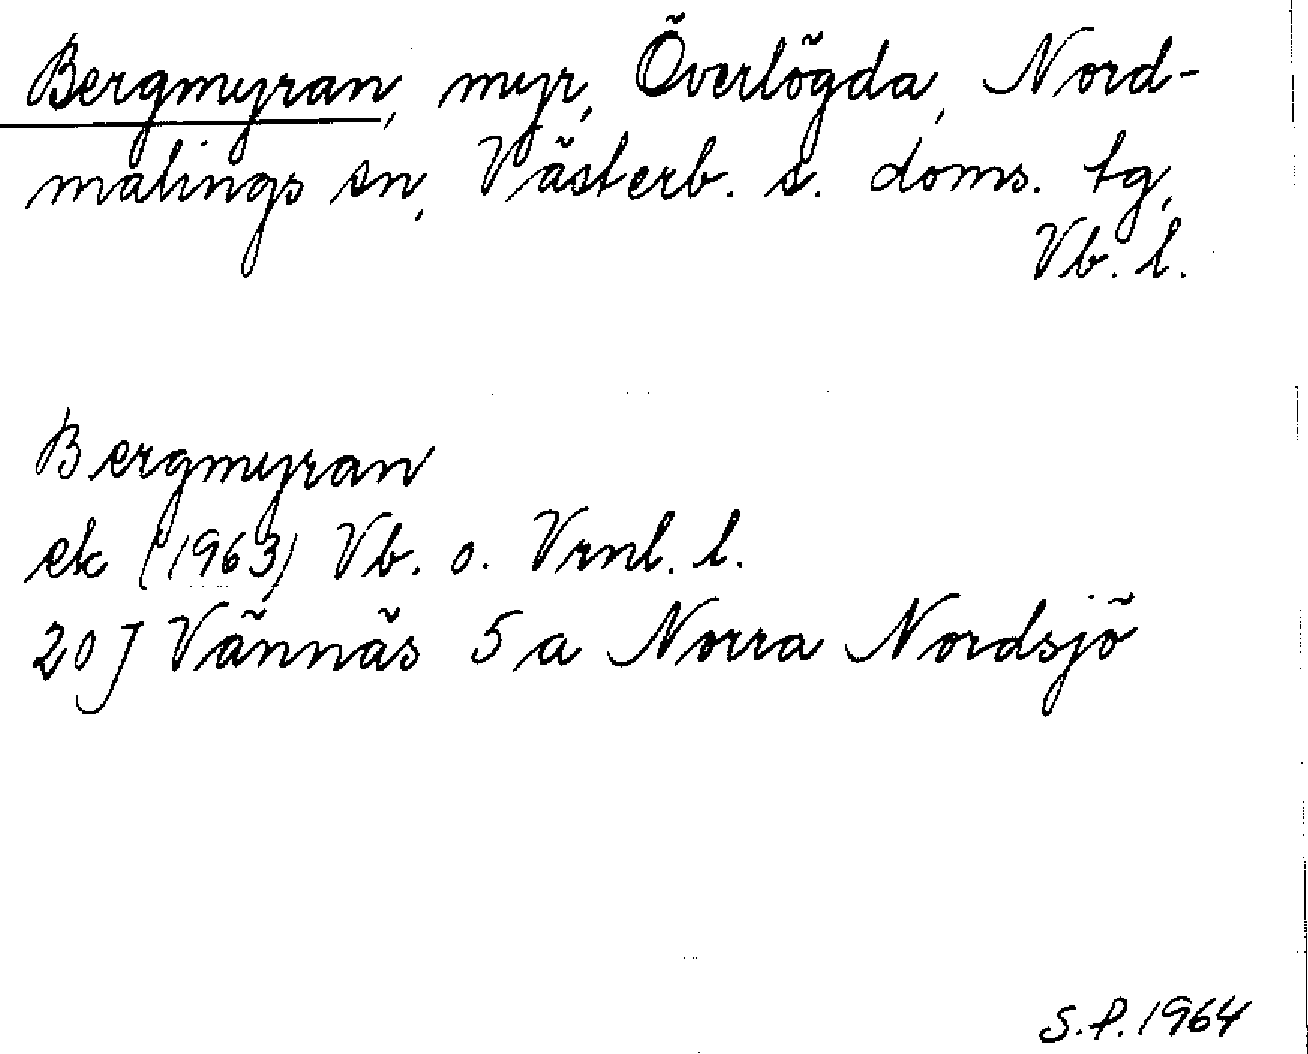 Bergmyran, myr, Överlögda, Nord-
malings sn, Västerb. s. doms. tg,
Vb. l.
Bergmyran
ek (1963) Vb. o. Vrml. l.
20 J Vännäs 5 a Norra Nordsjö
S.P. 1964